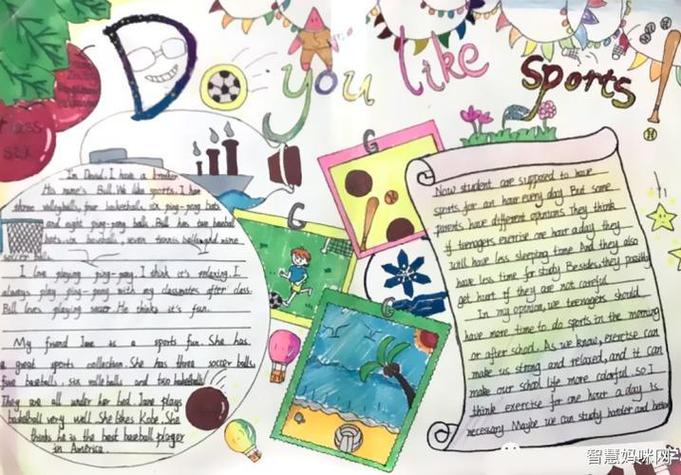 Do you like sports
Class
six
I'm David. I have a brother.
His name's Bill. We like sports. I have
three volleyballs, four basketballs, six ping-pong bats
and eight ping-pong balls. Bill has two baseball
bats, six baseballs, seven tennis balls and nine
soccer balls.
I love playing ping-pong. I think it's relaxing. I
always play ping-pong with my classmates after class.
Bill loves playing soccer. He thinks it's fun.
My friend Jane is a sports fan. She has
a great sports collection. She has three soccer balls,
five baseballs, six volleyballs and two basketballs.
They are all under her bed. Jane plays
basketball very well. She likes Kobe. She
thinks he is the best baseball player
in America.
Now student are supposed to have
sports for an hour every day. But some
parents have different opinions. They think
if teenagers exercise one hour a day, they
will have less sleeping time. And they also
have less time for study. Besides, they possibly
get hurt if they are not careful.
In my opinion, we teenagers should
have more time to do sports in the morning
or after school. As we know, exercise can
make us strong and relaxed, and it can
make our school life more colorful. so I
think exercise for one hour a day is
necessary. Maybe we can study harder and better
智慧妈咪网